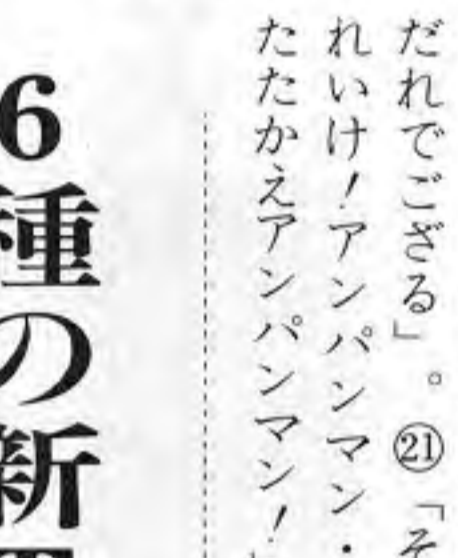 だれでござる」。㉑「そ
れいけ！アンパンマン・
たたかえアンパンマン！
6種の新